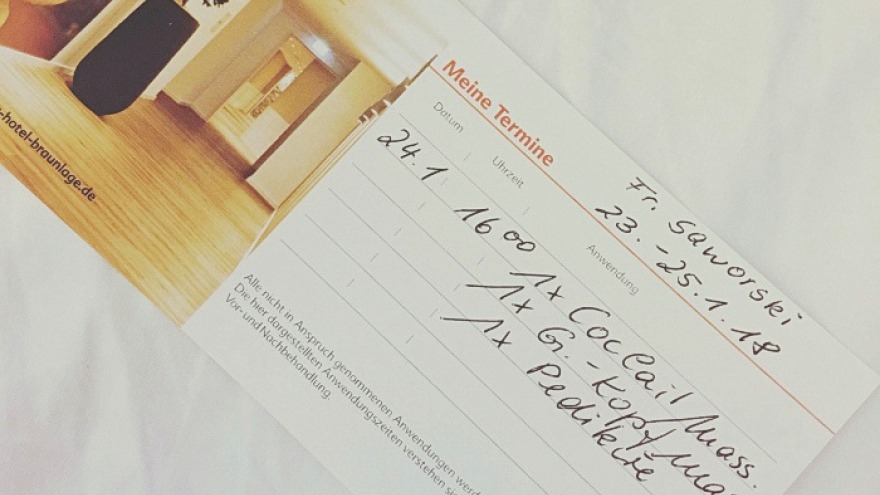 -hotel-braunlage.de
Meine Termine
Fr. Saworski
23.-25.1.18
Datum Uhrzeit Anwendung
24.1 1600 1x Coccail/Mass.
1x G.-Kopf/Ma
1x Pediküre
Alle nicht in Anspruch genommenen Anwendungen werd
Die hier dargestellten Anwendungszeiten verstehen si
Vor- und Nachbehandlung.